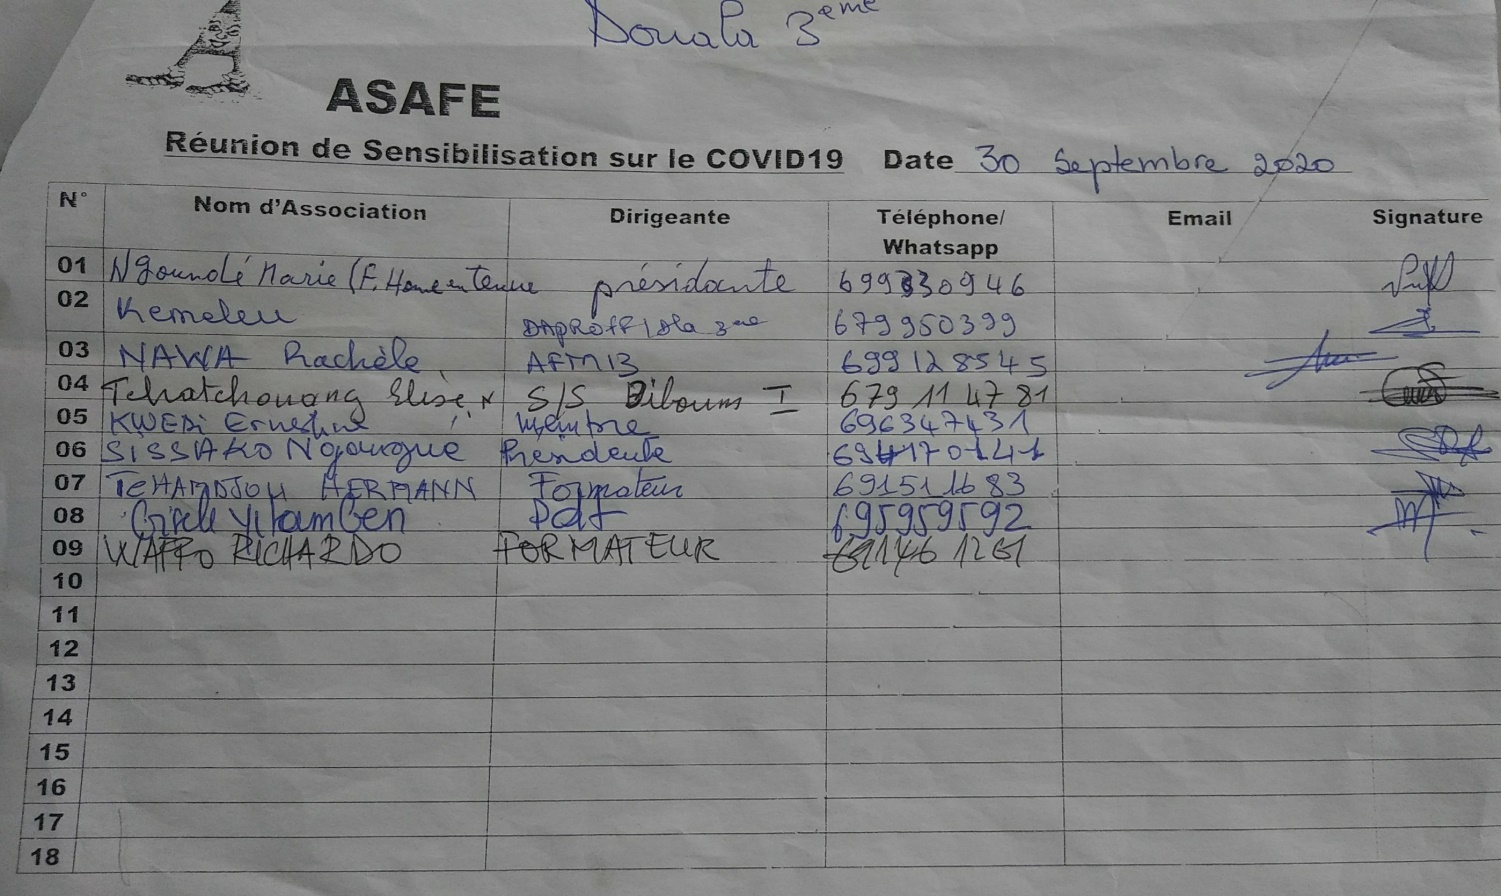 Douala 3ème
ASAFE
Réunion de Sensibilisation sur le COVID19 Date 30 Septembre 2020
N° Nom d'Association Dirigeante Téléphone/ Whatsapp Email Signature
01 Ngoundé Marie (F. Home en Tenue présidante 699330946
02 Kemeleu DAPROFF/Dla 3ème 679950399
03 NAWA Rachèle AFM13 699128545
04 Tchatchouang Elise N S/S Diboum I 679 11 47 81
05 KWEDI Ernestine membre 696347431
06 SISSAKO Ngoungue Presidente 694170141
07 TCHAMDJOU HERMANN Formateur 691511683
08 695959592
09 WAFFO RICHARDO FORMATEUR 69146 1261
10
11
12
13
14
15
16
17
18